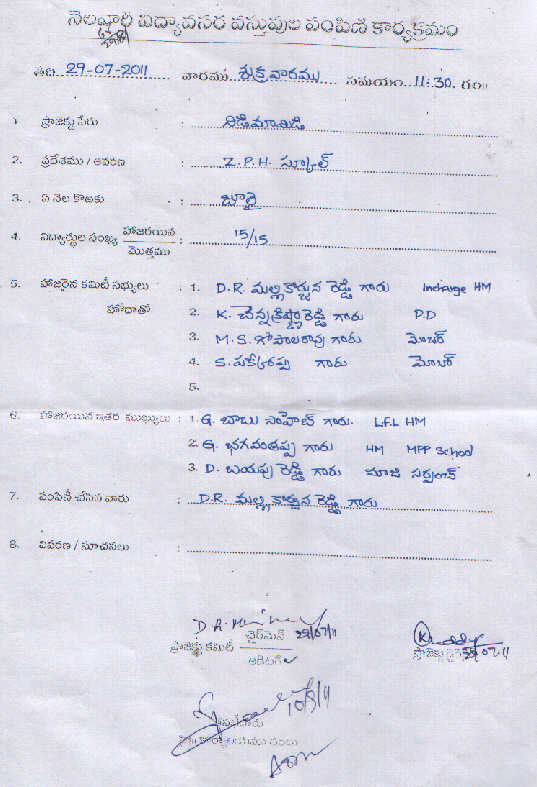 నెలవారీ విద్యావసర వస్తువుల పంపిణీ కార్యక్రమం
తేది 29-07-2011 వారము శుక్రవారము సమయం 11:30. గం॥
1 ప్రాజెక్టు పేరు : ఆడిమాతడి
2. ప్రదేశము / ఆవరణ : Z.P.H. స్కూల్
3. ఏ నెల కొఱకు : జూలై
4. విద్యార్థుల సంఖ్య హాజరయిన / మొత్తము : 15/15
5. హాజరైన కమిటీ సభ్యులు : 1. D.R. మల్లికార్జున రెడ్డి గారు Incharge HM
హోదాతో 2. K. చెన్నక్రిష్ణారెడ్డి గారు P.D
3. M.S. గోపాలరావు గారు మెంబర్
4. S. పక్కీరప్ప గారు మెంబర్
5.
6. హాజరయిన ఇతర ముఖ్యులు : 1. G. బాబు సాహెబ్ గారు. L.F.L HM
2. G. భగవంతప్ప గారు HM MPP School
3. D. బయపు రెడ్డి గారు మాజి సర్పంచ్
7. పంపిణీ చేసిన వారు : D.R. మల్లికార్జున రెడ్డి గారు
8. వివరణ / సూచనలు :
ఛైర్మెన్ 29/07/11
ప్రాజెక్టు కమిటీ
ప్రాజెక్టు డైరె 29-07-11
10/8/11